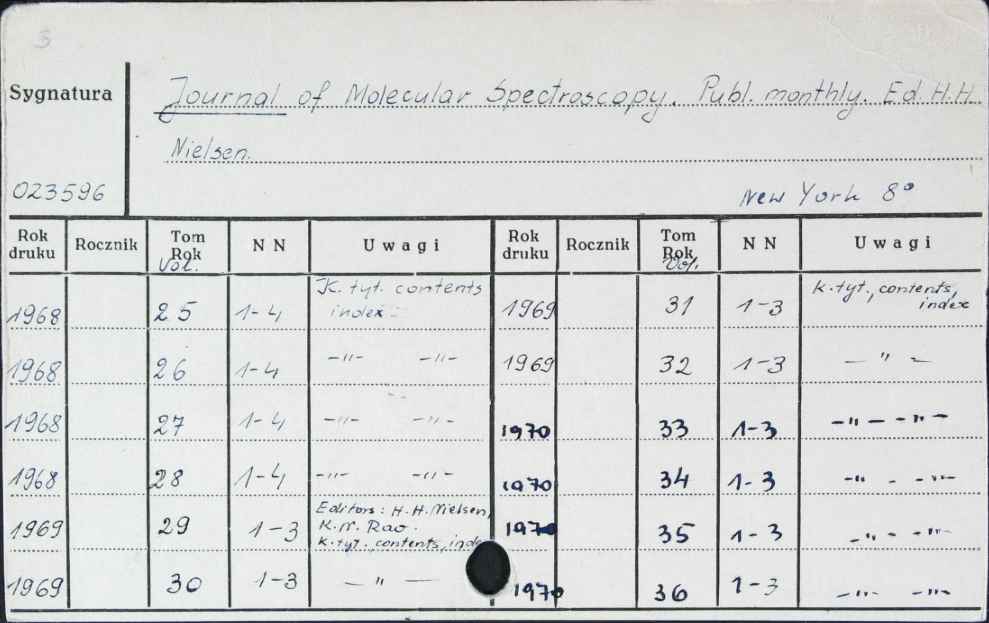 3
Sygnatura
Journal of Molecular Spectroscopy. Publ. monthly. Ed. H.H.
Nielsen.
023596
New York 8°
Rok druku Rocznik Tom Rok Vol. N N Uwagi Rok druku Rocznik Tom Rok Vol. N N Uwagi
1968 25 1-4 K. tyt. contents index 1969 31 1-3 k. tyt., contents, index
1968 26 1-4 -"- -"- 1969 32 1-3 - " -
1968 27 1-4 -"- -"- 1970 33 1-3 -"- -"-
1968 28 1-4 -"- -"- 1970 34 1-3 -"- -"-
1969 29 1-3 Editors: H.H. Nielsen, K.N. Rao. k. tyt., contents, index 1970 35 1-3 -"- -"-
1969 30 1-3 - " - 1970 36 1-3 -"- -"-